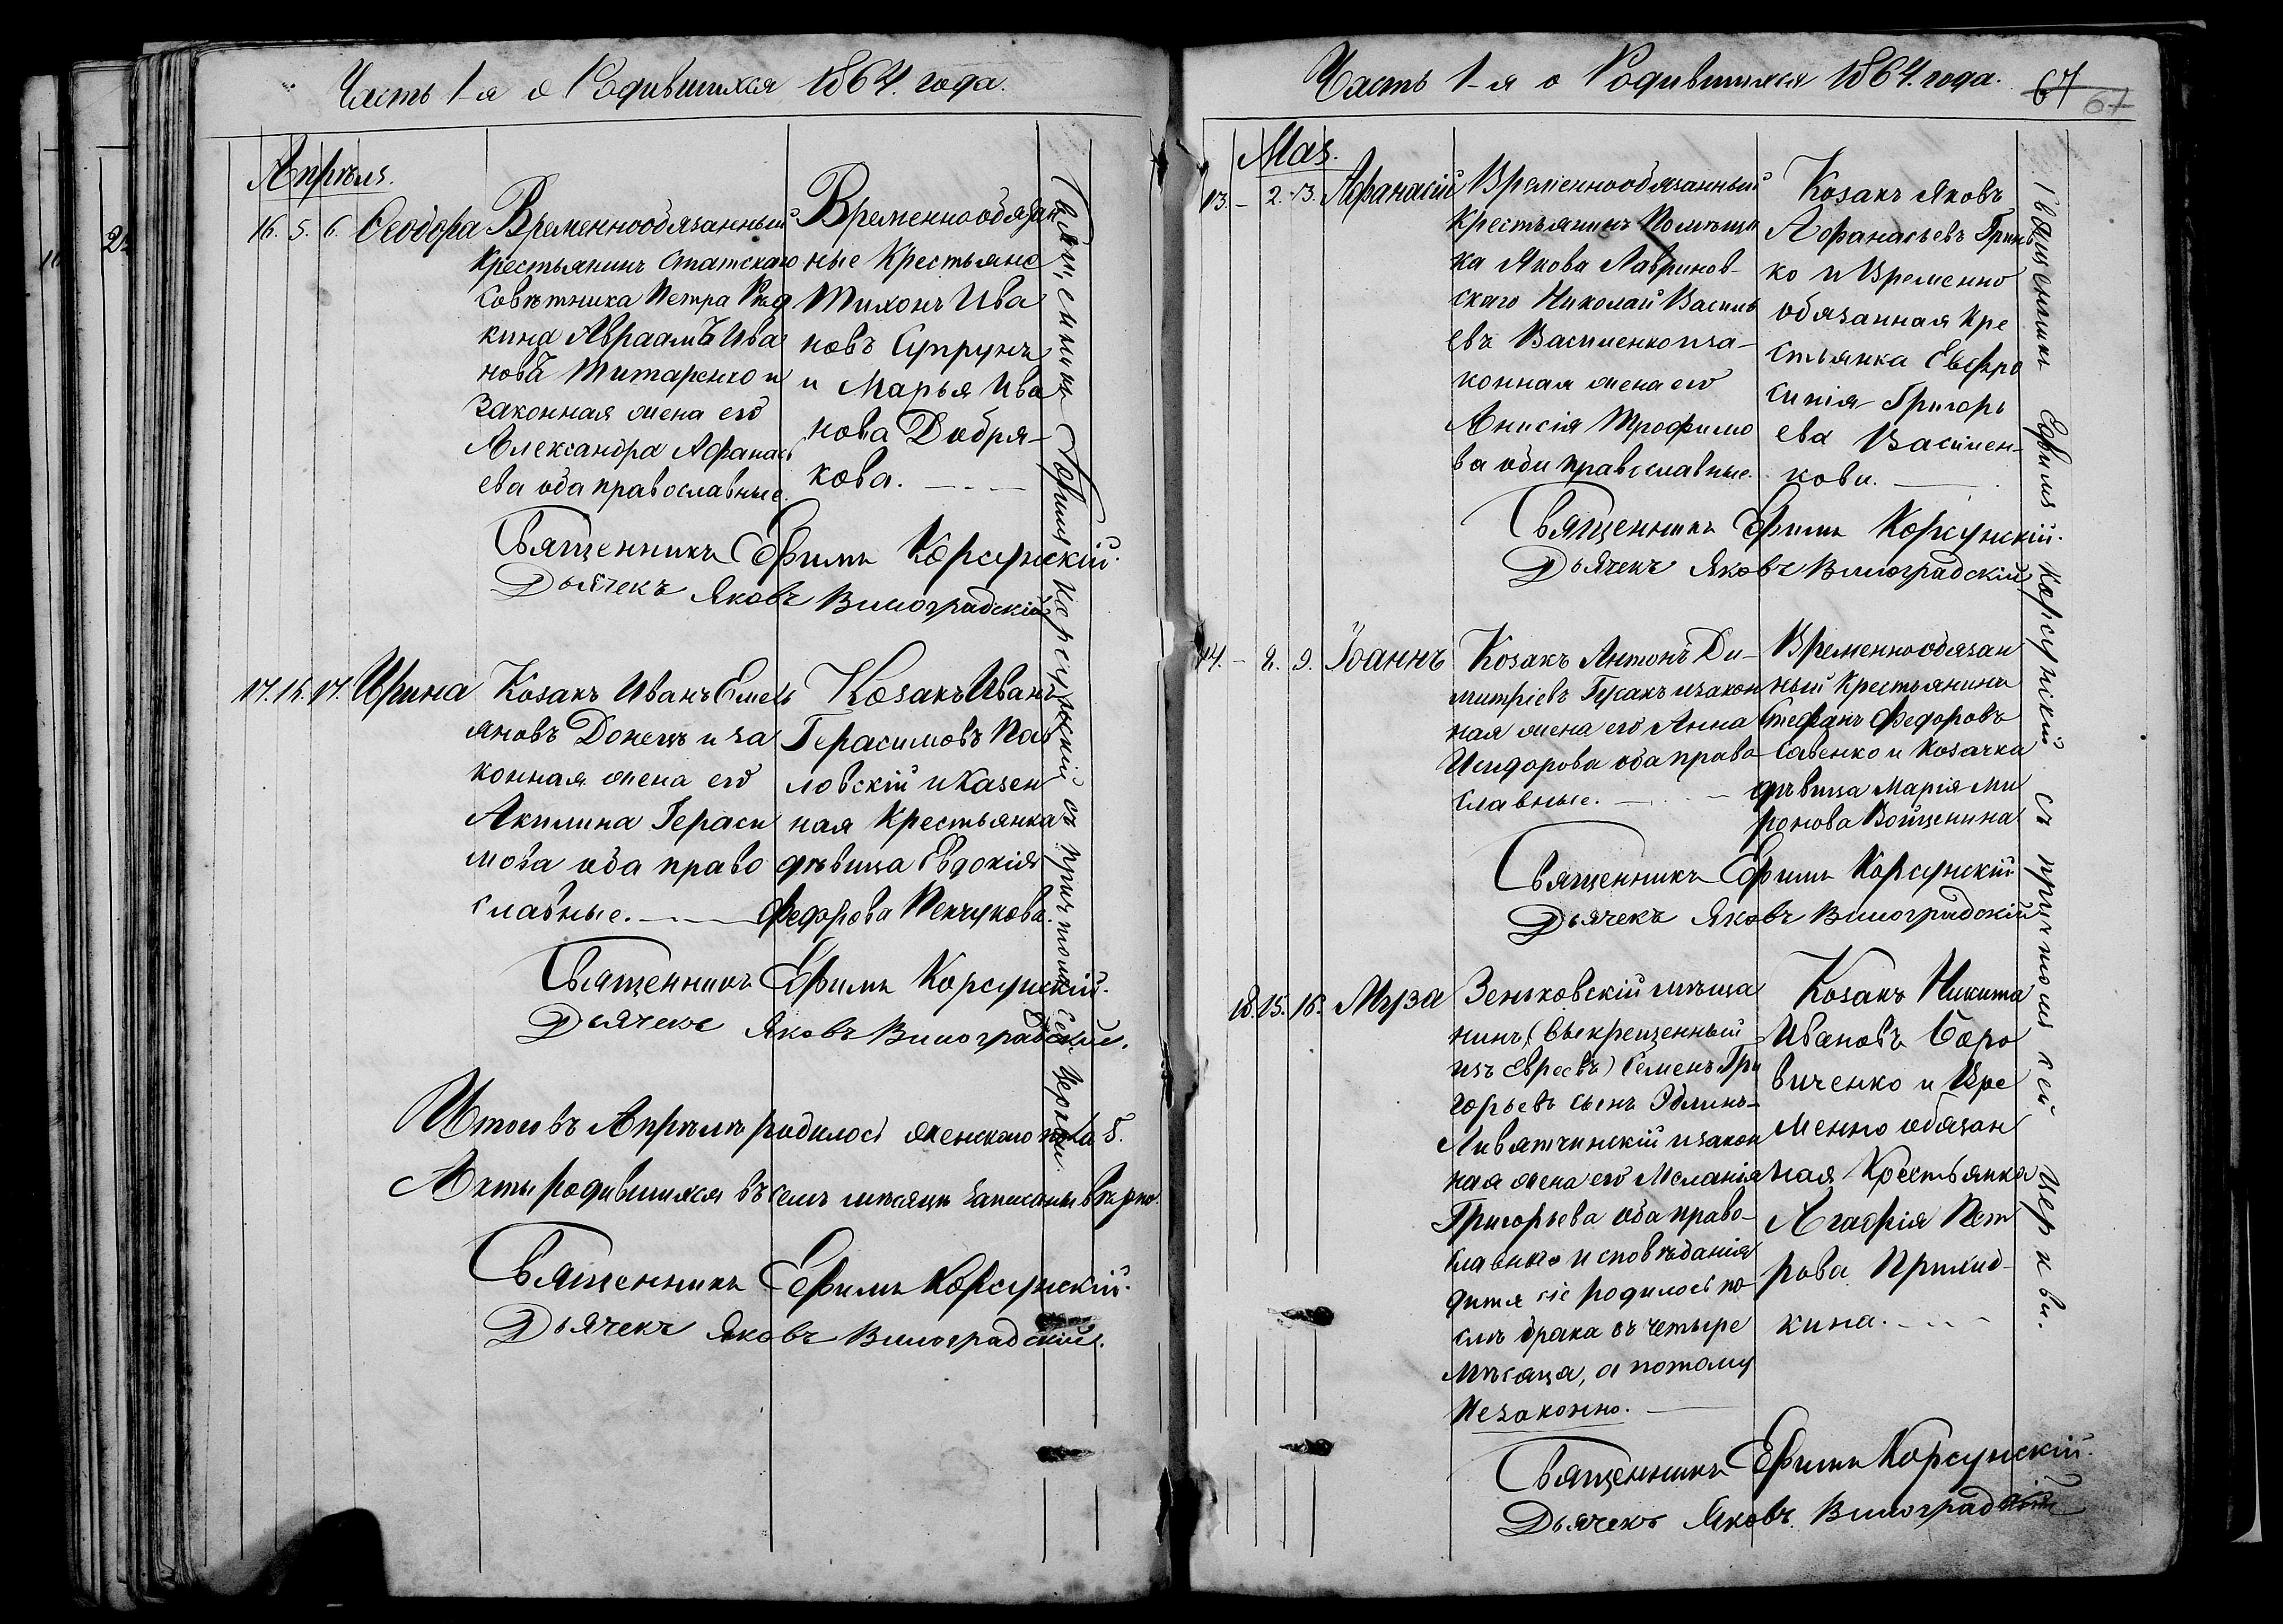 Часть 1-я о Родившихся 1864. года.
Апрѣля.
16. 5. 6. Ѳеодора
Временнообязанный
Крестьянинъ Статскаго
Совѣтника Петра Рѣд
кина Авраамъ Ива
новъ Титаренко и
Законная жена его
Александра Афанась
ева оба православные.
Временнообязан
ные Крестьяне
Тихонъ Ива
новъ Супрунъ
и Марья Ива
нова Добря-
кова.
Священникъ Ефимъ Корсунскій.
Дьячекъ Яковъ Виноградскій
17. 15. 17. Ирина
Козакъ Иванъ Емель
яновъ Донецъ и за
конная жена его
Акилина Гераси
мова оба право
славные.
Козакъ Иванъ
Герасимовъ Пав
ловскій и Казен
ная Крестьянка
дѣвица Евдокія
Федорова Пенчукова.
Священникъ Ефимъ Корсунскій.
Дьячекъ Яковъ Виноградскій.
Итого въ Апрѣлѣ родилось женскаго пола 5.
Акты родившихся въ семъ мѣсяцѣ записаны вѣрно.
Священникъ Ефимъ Корсунскій.
Дьячекъ Яковъ Виноградскій.
Священникъ Ефимъ Корсунскій съ причтомъ сей Церкви.
Часть 1-я о Родившихся 1864. года.
67
67
Мая.
13. - 2. 3. Афанасій
Временнообязанный
Крестьянинъ Помѣщи
ка Якова Лавринов-
скаго Николай Василь
евъ Василенко и за-
конная жена его
Анисія Трофимо
ва оба православные.
Козакъ Яковъ
Афанасьевъ Гринь
ко и Временно
обязанная Кре
стьянка Евфро
синія Григорь
ева Василен-
кова.
Священникъ Ефимъ Корсунскій.
Дьячекъ Яковъ Виноградскій
14. - 8. 9. Іоаннъ
Козакъ Антонъ Ди-
митріевъ Гусакъ и закон
ная жена его Анна
Исидорова оба право
славные.
Временнообязан
ный Крестьянинъ
Стефанъ Федоровъ
Савенко и Козачка
дѣвица Марія Ми
ронова Войщенина
Священникъ Ефимъ Корсунскій
Дьячекъ Яковъ Виноградскій
18. 15. 16. Муза
Зеньковскій мѣща
нинъ (выкрещенный
изъ Евреевъ) Семенъ Гри
горьевъ сынъ Эдлинъ-
Ливятинскій и закон
ная жена его Меланія
Григорьева оба право-
славнаго исповѣданія
дитя сіе родилось по-
слѣ брака въ четыре
мѣсяца, а потому
Незаконно.
Козакъ Никита
Ивановъ Боро
виченко и Вре
менно обязан
ная Крестьянка
Агафія Пет
рова Прихид-
кина.
Священникъ Ефимъ Корсунскій.
Дьячекъ Яковъ Виноградскій
Священникъ Ефимъ Корсунскій съ причтомъ сей Церкви.